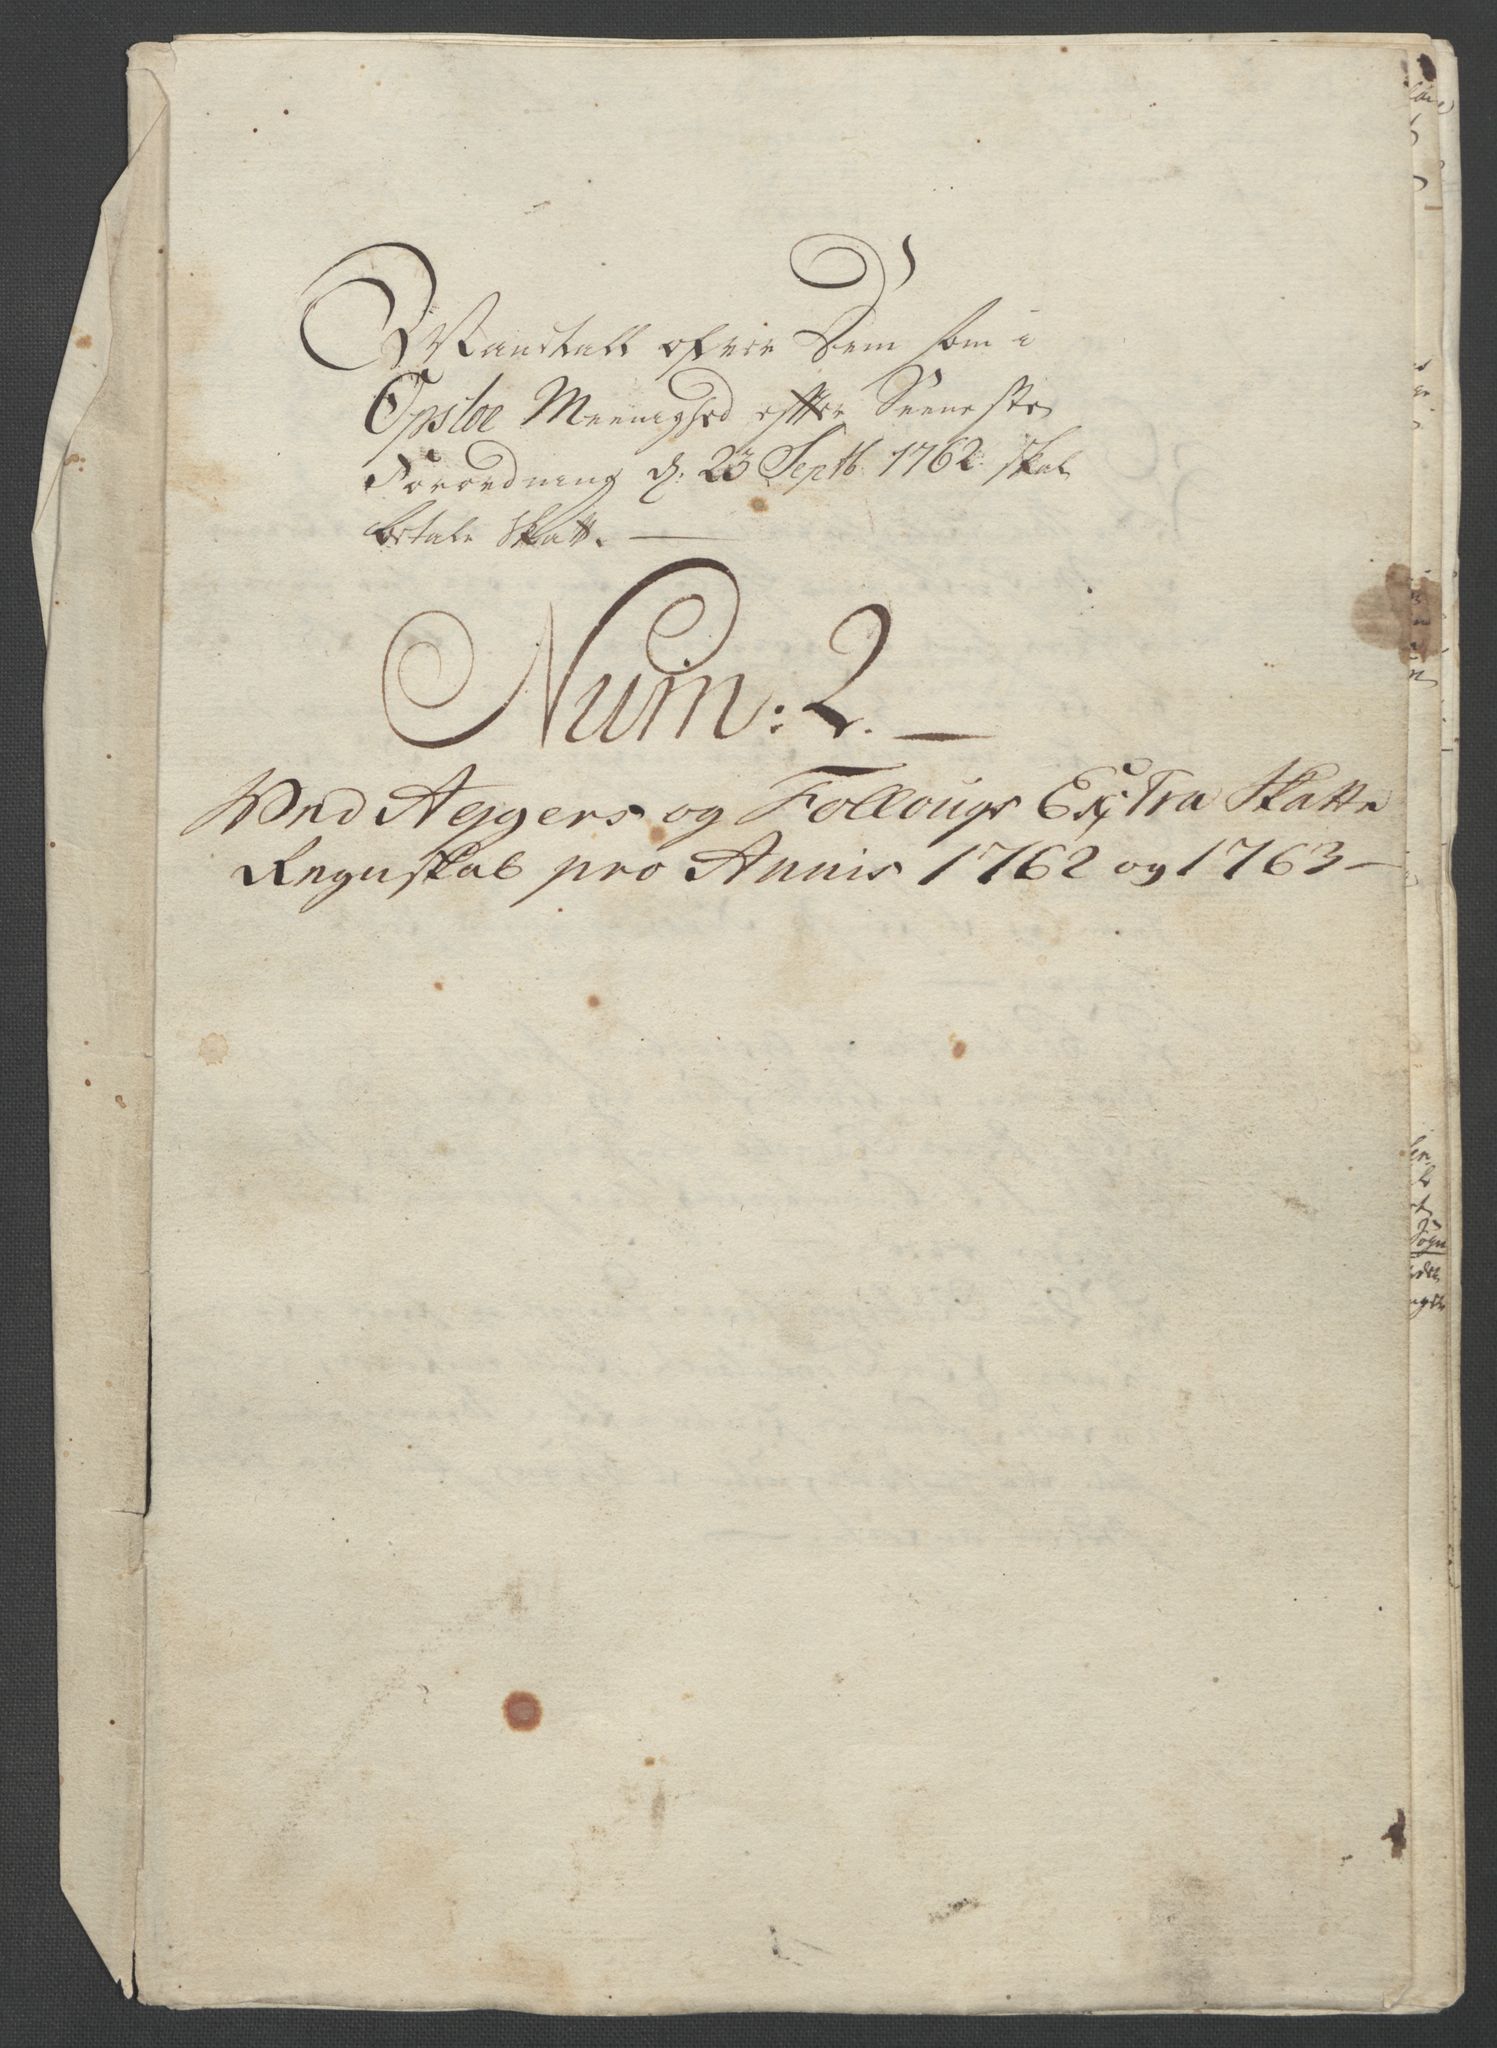 Mandtall ofver Dem som i
Opsloe Meenighed efter Seeneste
Forordning d: 23 Septb: 1762 skal
betale Skatt.
Num: 2.
Ved Aggers og Follougs Extra Skatte
Regnskab pro Annis 1762 og 1763